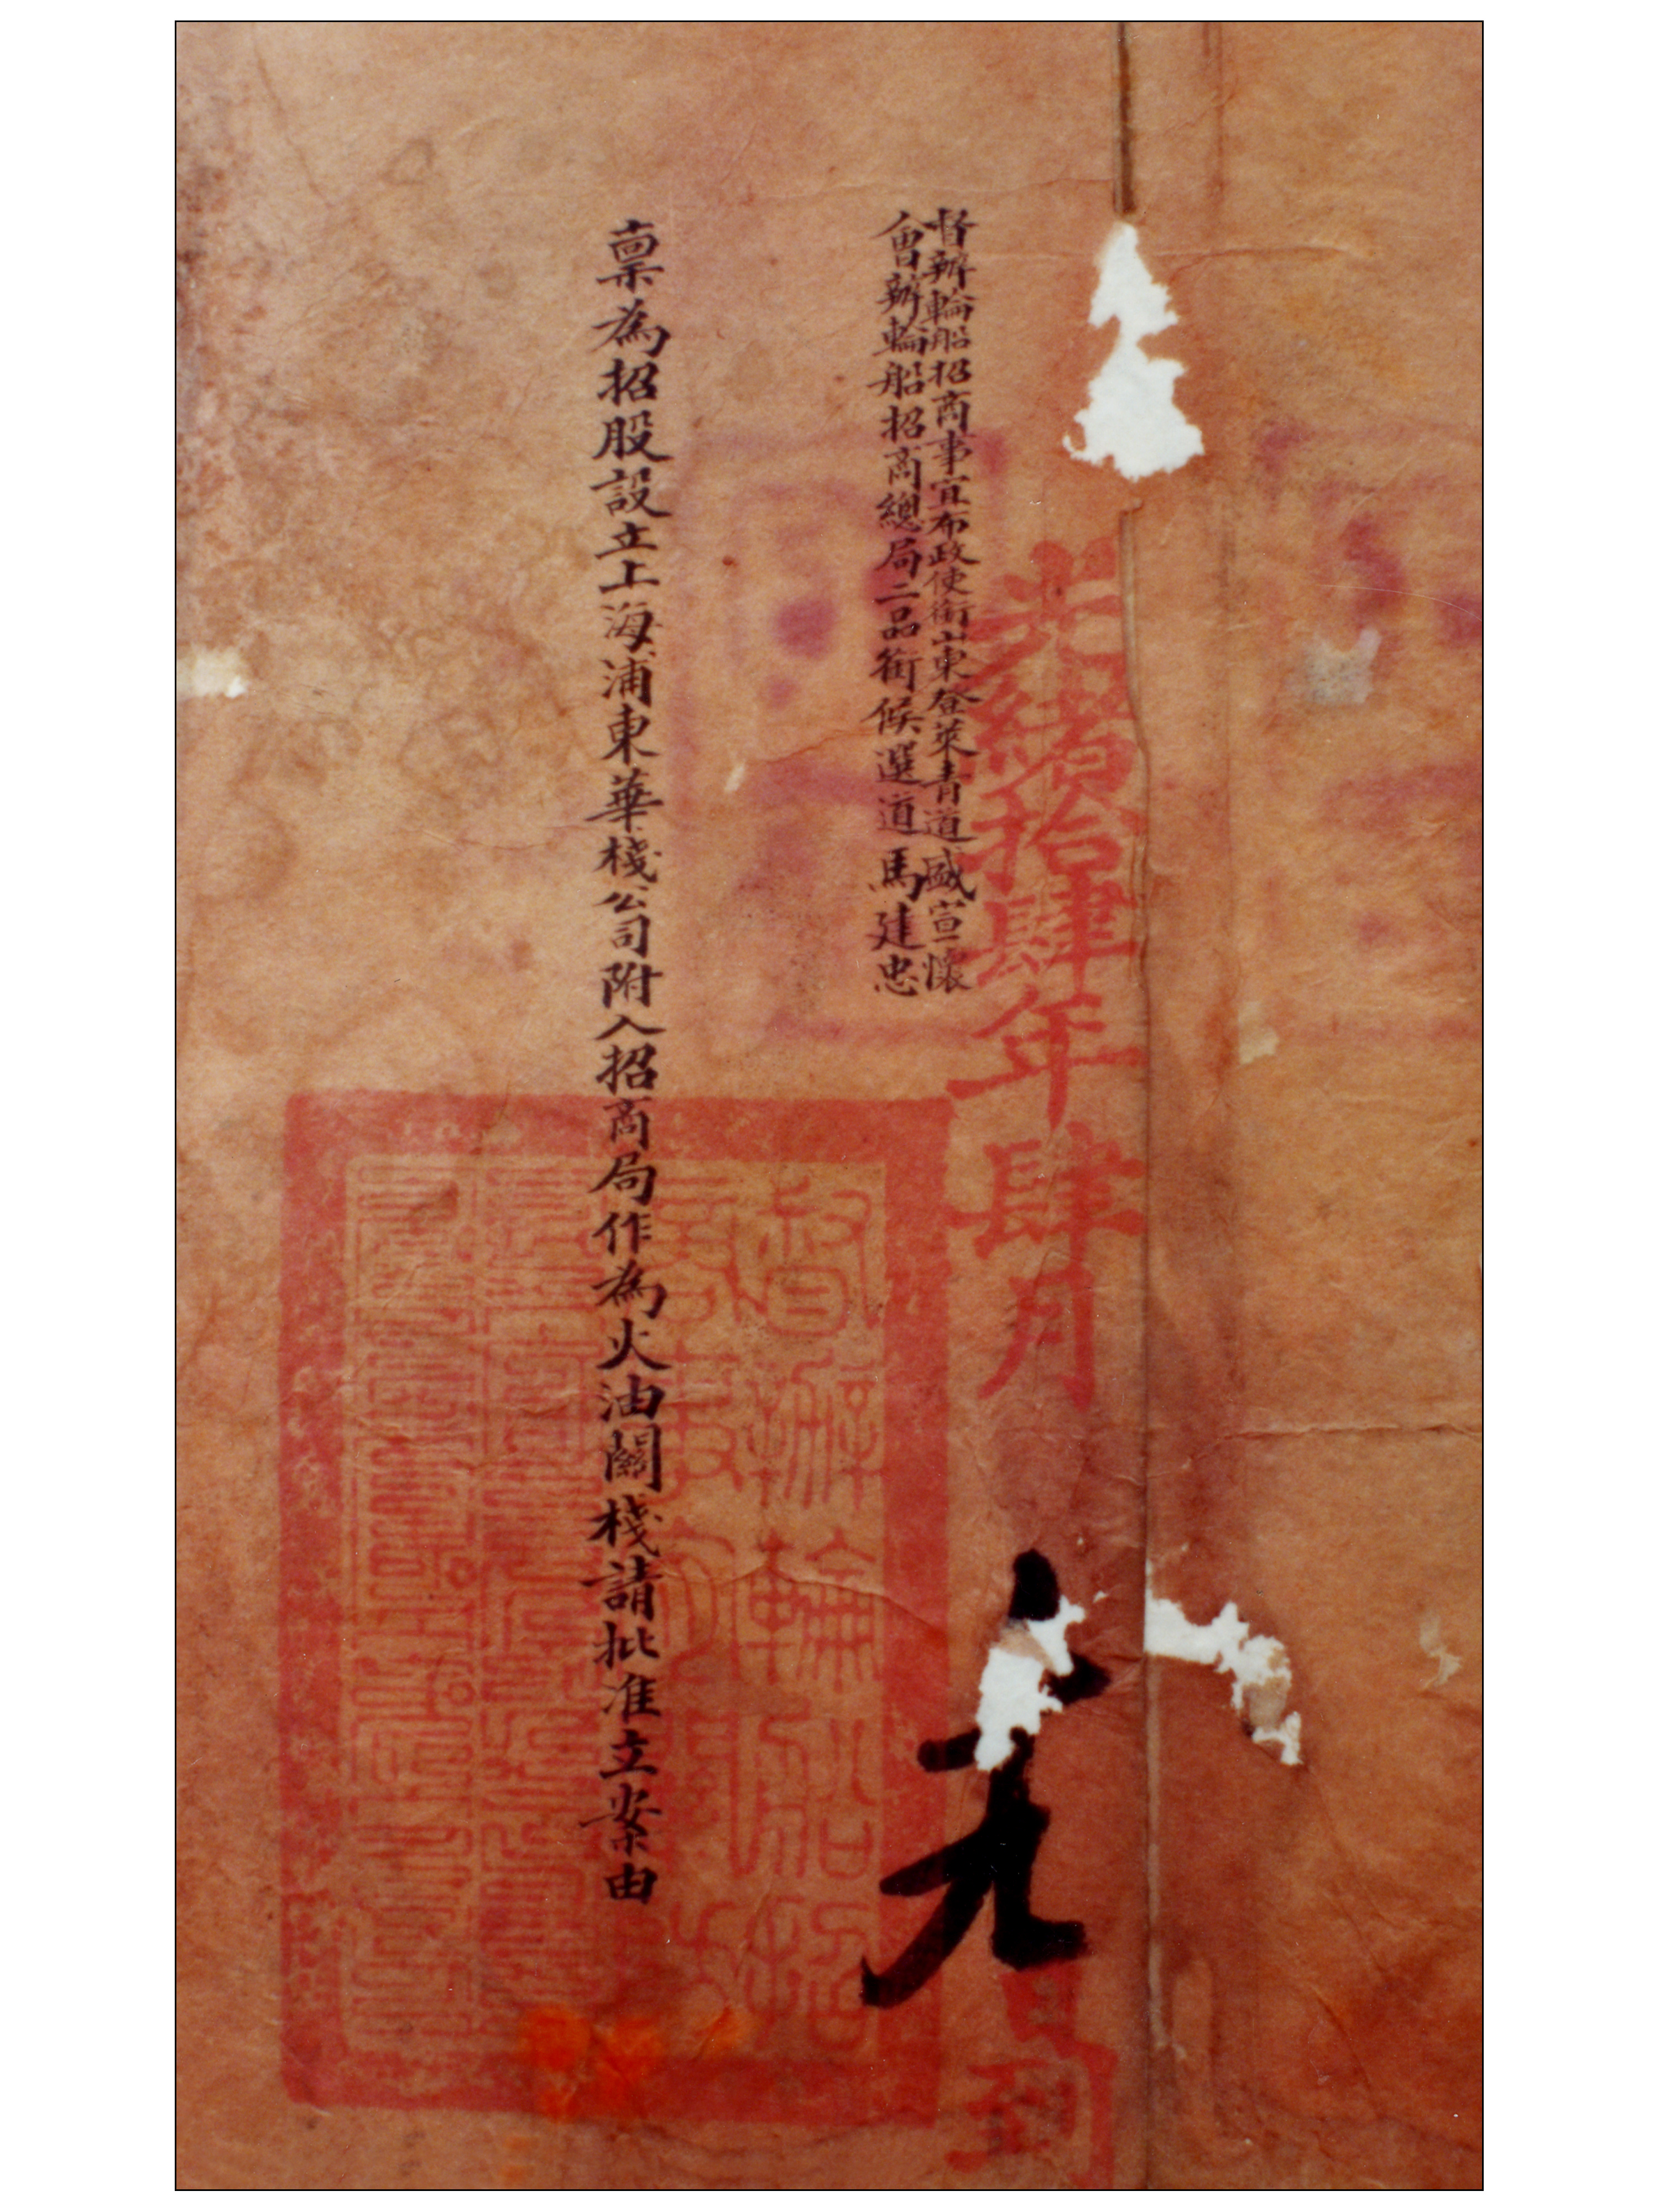 光緒拾肆年肆月
日到
督辦輪船招商事宜布政使銜山東登萊青道盛宣懷
會辦輪船招商總局二品銜候選道馬建忠
稟為招股設立上海浦東華棧公司附入招商局作為火油關棧請批准立案由
督辦輪船招